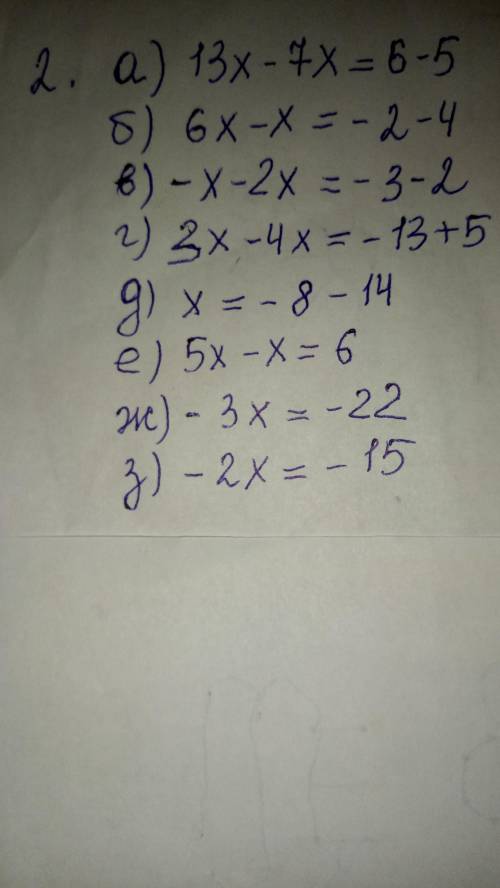 2. а) 13x - 7x = 6 - 5
б) 6x - x = - 2 - 4
в) - x - 2x = - 3 - 2
г) 3x - 4x = - 13 + 5
д) x = - 8 - 14
е) 5x - x = 6
ж) - 3x = - 22
з) - 2x = - 15